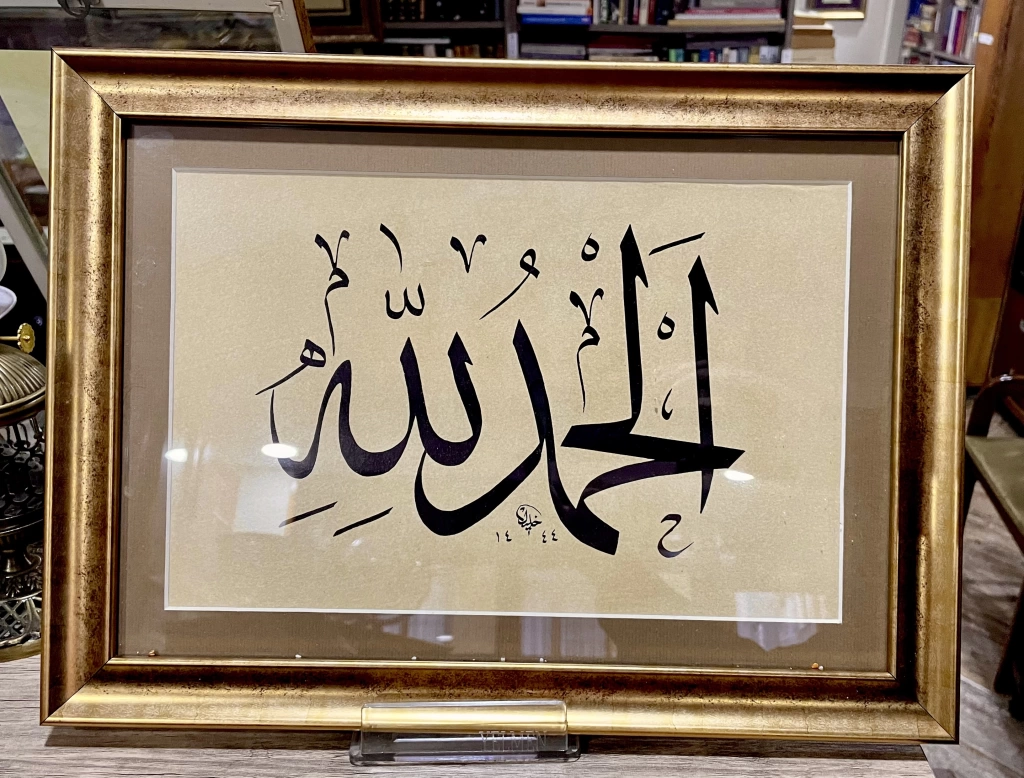 اَلْحَمْدُ لِلّٰهِ
١٤ ٤٤